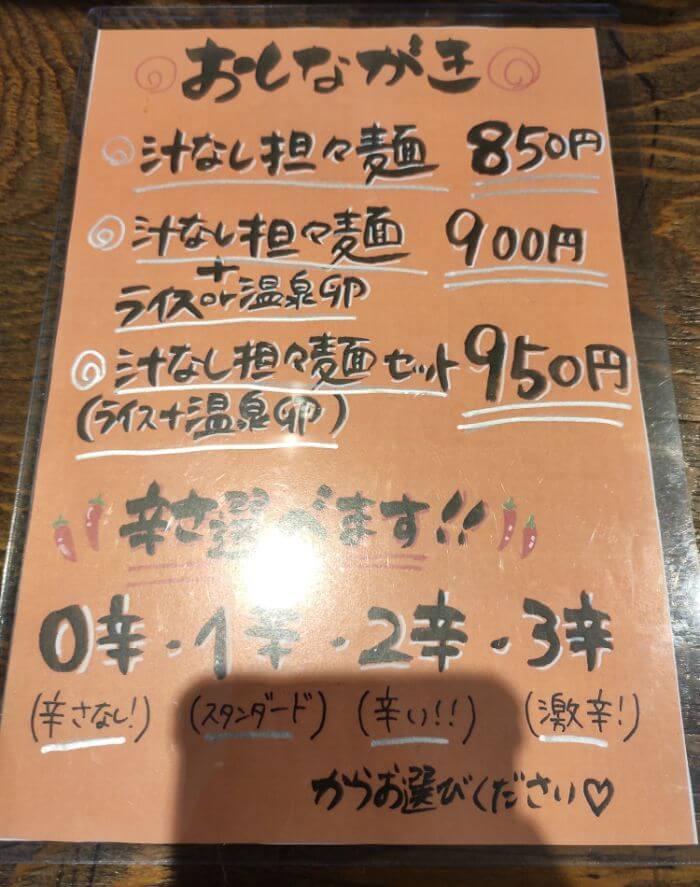 おしながき
汁なし担々麺 850円
汁なし担々麺 900円
+
ライスor温泉卵
汁なし担々麺セット 950円
(ライス+温泉卵)
辛さ選べます!!
0辛・1辛・2辛・3辛
(辛さなし!) (スタンダード) (辛い!!) (激辛!)
からお選びください♡